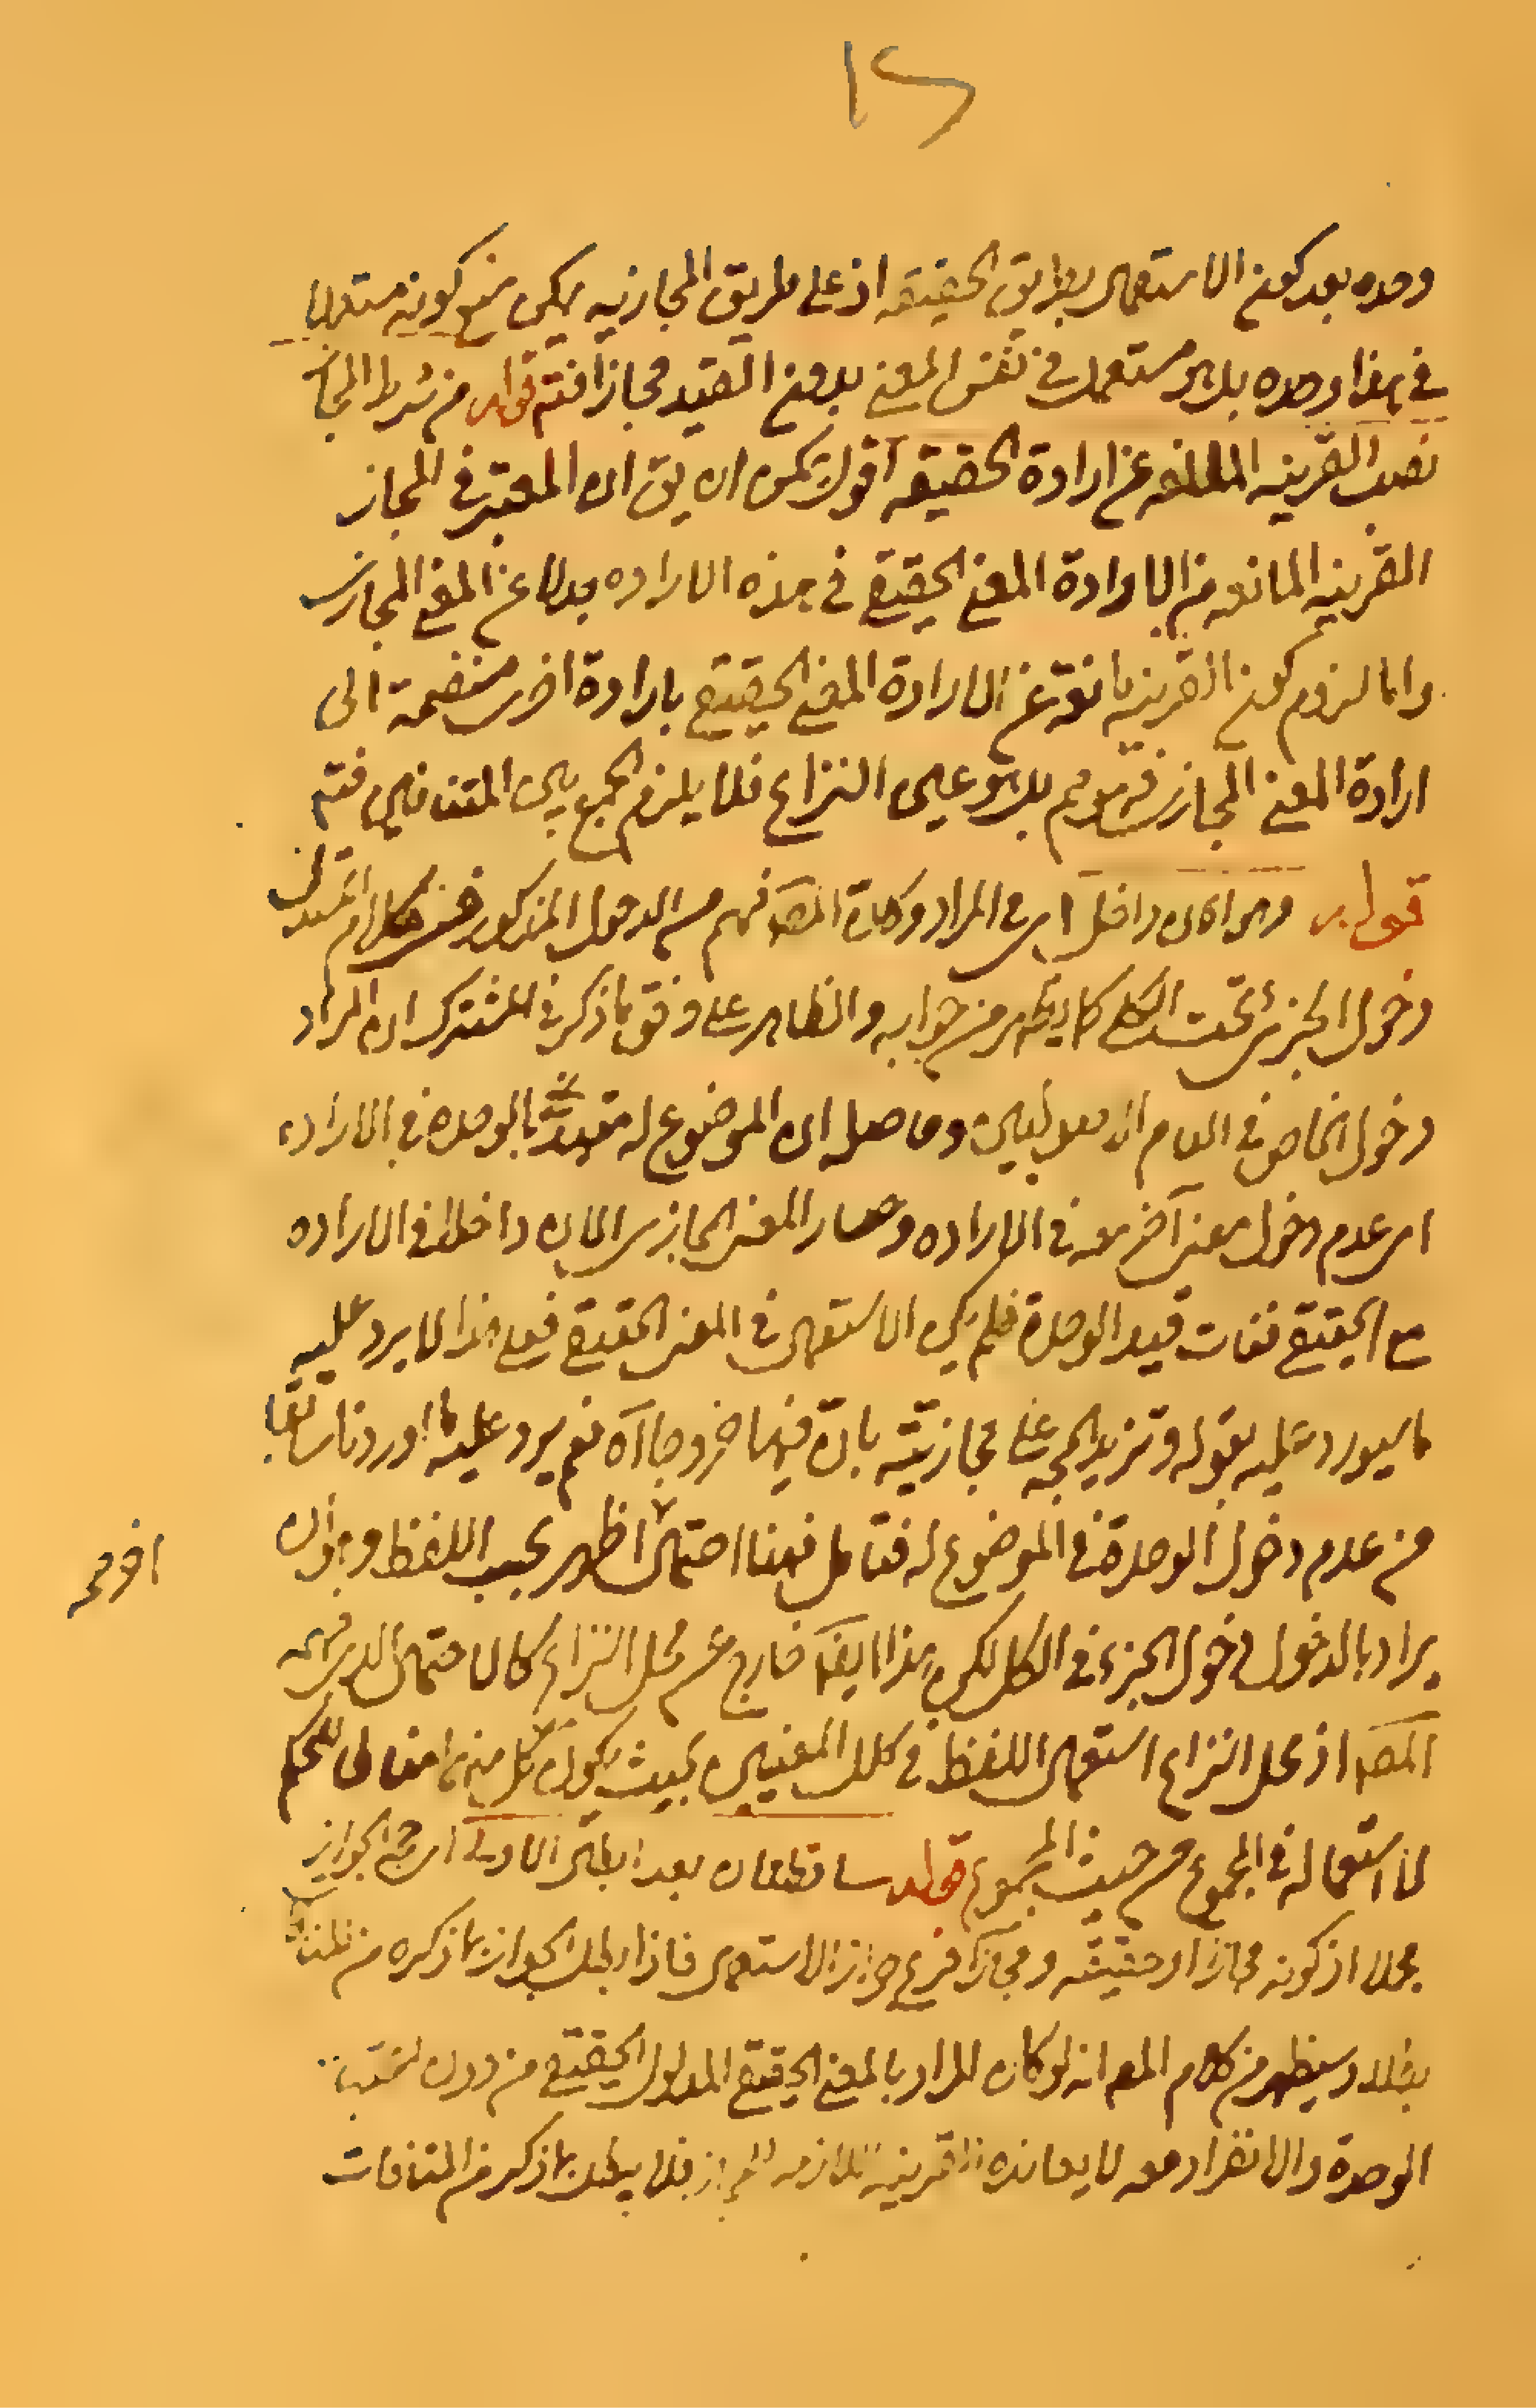 ١٢
وحده بعد كون الاستعمال بطريق الحقيقه اذ على طريق المجازيه يمكن منع كونه مستعملا
في هذا وحده بل هو مستعمل في نفس المعنى بدون القيد مجازا فتم قوله من شرط المجاز
نصب القرينه المانعه عن ارادة الحقيقه اقول يمكن ان يق ان المعتبر في المجاز
القرينه المانعه من الارادة المعنى الحقيقي في هذه الاراده بدلا عن المعنى المجازى
واما لزوم كون القرينه مانعة عن الارادة المعنى الحقيقي بارادة اخرى منضمة الى
ارادة المعنى المجازى فمم بل هو عين النزاع فلا يلزم الجمع بين المتنافيين فتم
قوله وهو كان داخلا اى في المراد وكان المصـ فهم من الدخول المذكور في كلام المستدل
دخول الجزئى تحت الكلى كما يظهر من جوابه والظاهر على وفق ما ذكر في المشترك ان المراد
دخول الخاص في العام وحاصله ان الموضوع له مقيد بالوحده في الاراده
اى عدم دخول معنى آخر معه في الاراده وصار المعنى المجازى الان داخلا في الاراده
مع الحقيقي ففات قيد الوحدة فلم يكن الاستعمال في المعنى الحقيقي فعلى هذا لا يرد عليه
ما سيورد عليه بقوله وتزيد الحجه على مجازيته بان فيها خروجا آه نعم يرد عليه ما اوردنا سابقا
من عدم دخول الوحدة في الموضوع له فتامل فهنا احتمال اظهر بحسب اللفظ وهو ان
يراد بالدخول دخول الجزء في الكل لكن هذا ايضا خارج عن محل النزاع كالاحتمال الذى فهمه
المصـ اذ محل النزاع استعمال اللفظ في كلا المعنيين بحيث يكون كل منهما مناطا للحكم
لا استعماله في المجموع من حيث المجموع قوله ساقطان بعد ابطال الاولى اى الجواز
مجملا اذ كونه مجازا او حقيقه ومجازا فرع جواز الاستعمال فاذا بطل الجواز بما ذكره من
بطلا وسيظهر من كلام المصـ انه لو كان المراد بالمعنى الحقيقي المدلول الحقيقي من دون
الوحدة والانفراد معه لا يعانده القرينه اللازمه للمجاز فلا يبطل بما ذكر من المنافات